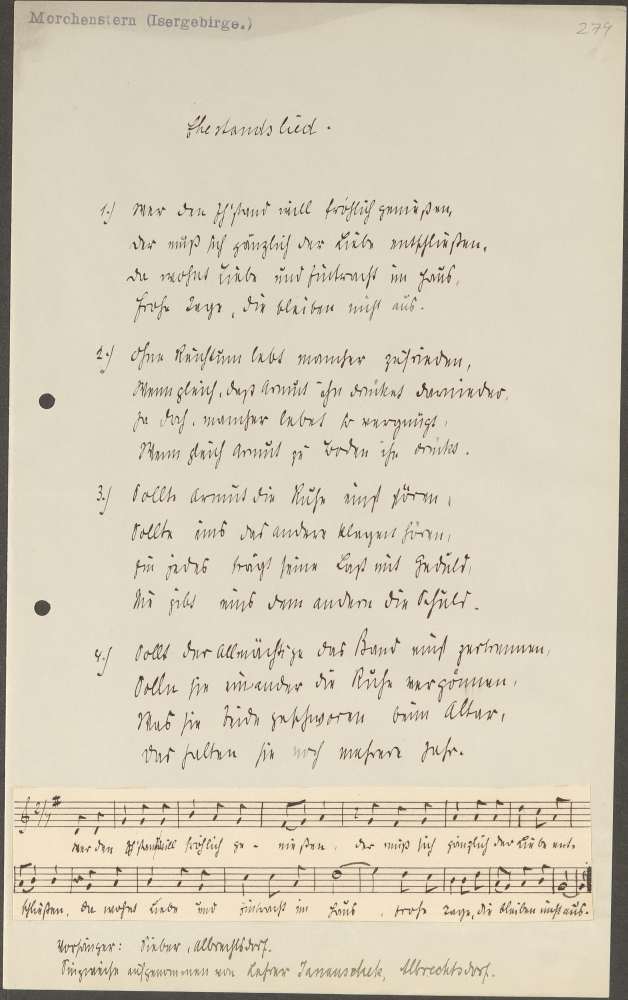 Morchenstern (Isergebirge.)
274
Ehestandslied.
1.) Wer den Eh'stand will fröhlich genießen,
Der muß sich gänzlich der Liebe entschließen.
Da wohnt Liebe und Eintracht im Haus,
Frohe Tage, die bleiben nicht aus.
2.) Ohne Reichtum lebt mancher zufrieden,
Wenn gleich, daß Armut ihn drücket darnieder,
Ja doch, mancher lebet so vergnügt,
Wenn gleich Armut zu Boden ihn drückt.
3.) Sollte Armut die Ruhe einst stören,
Sollte eins das andere klagen hören,
Ein jedes trägt seine Last mit Geduld,
Nie gibt eins dem andern die Schuld.
4.) Sollt der Allmächtige das Band einst zertrennen,
Solln sie einander die Ruhe vergönnen,
Was sie beide geschworen beim Altar,
Das halten sie noch mehrere Jahr.
Wer den Eh'stand will fröhlich ge - nießen, der muß sich gänzlich der Liebe ent-
schließen. Da wohnt Liebe und Eintracht im Haus, frohe Tage, die bleiben nicht aus.
Vorsänger: Sieber, Albrechtsdorf.
Singweise aufgenommen von Lehrer Janauschek, Albrechtsdorf.